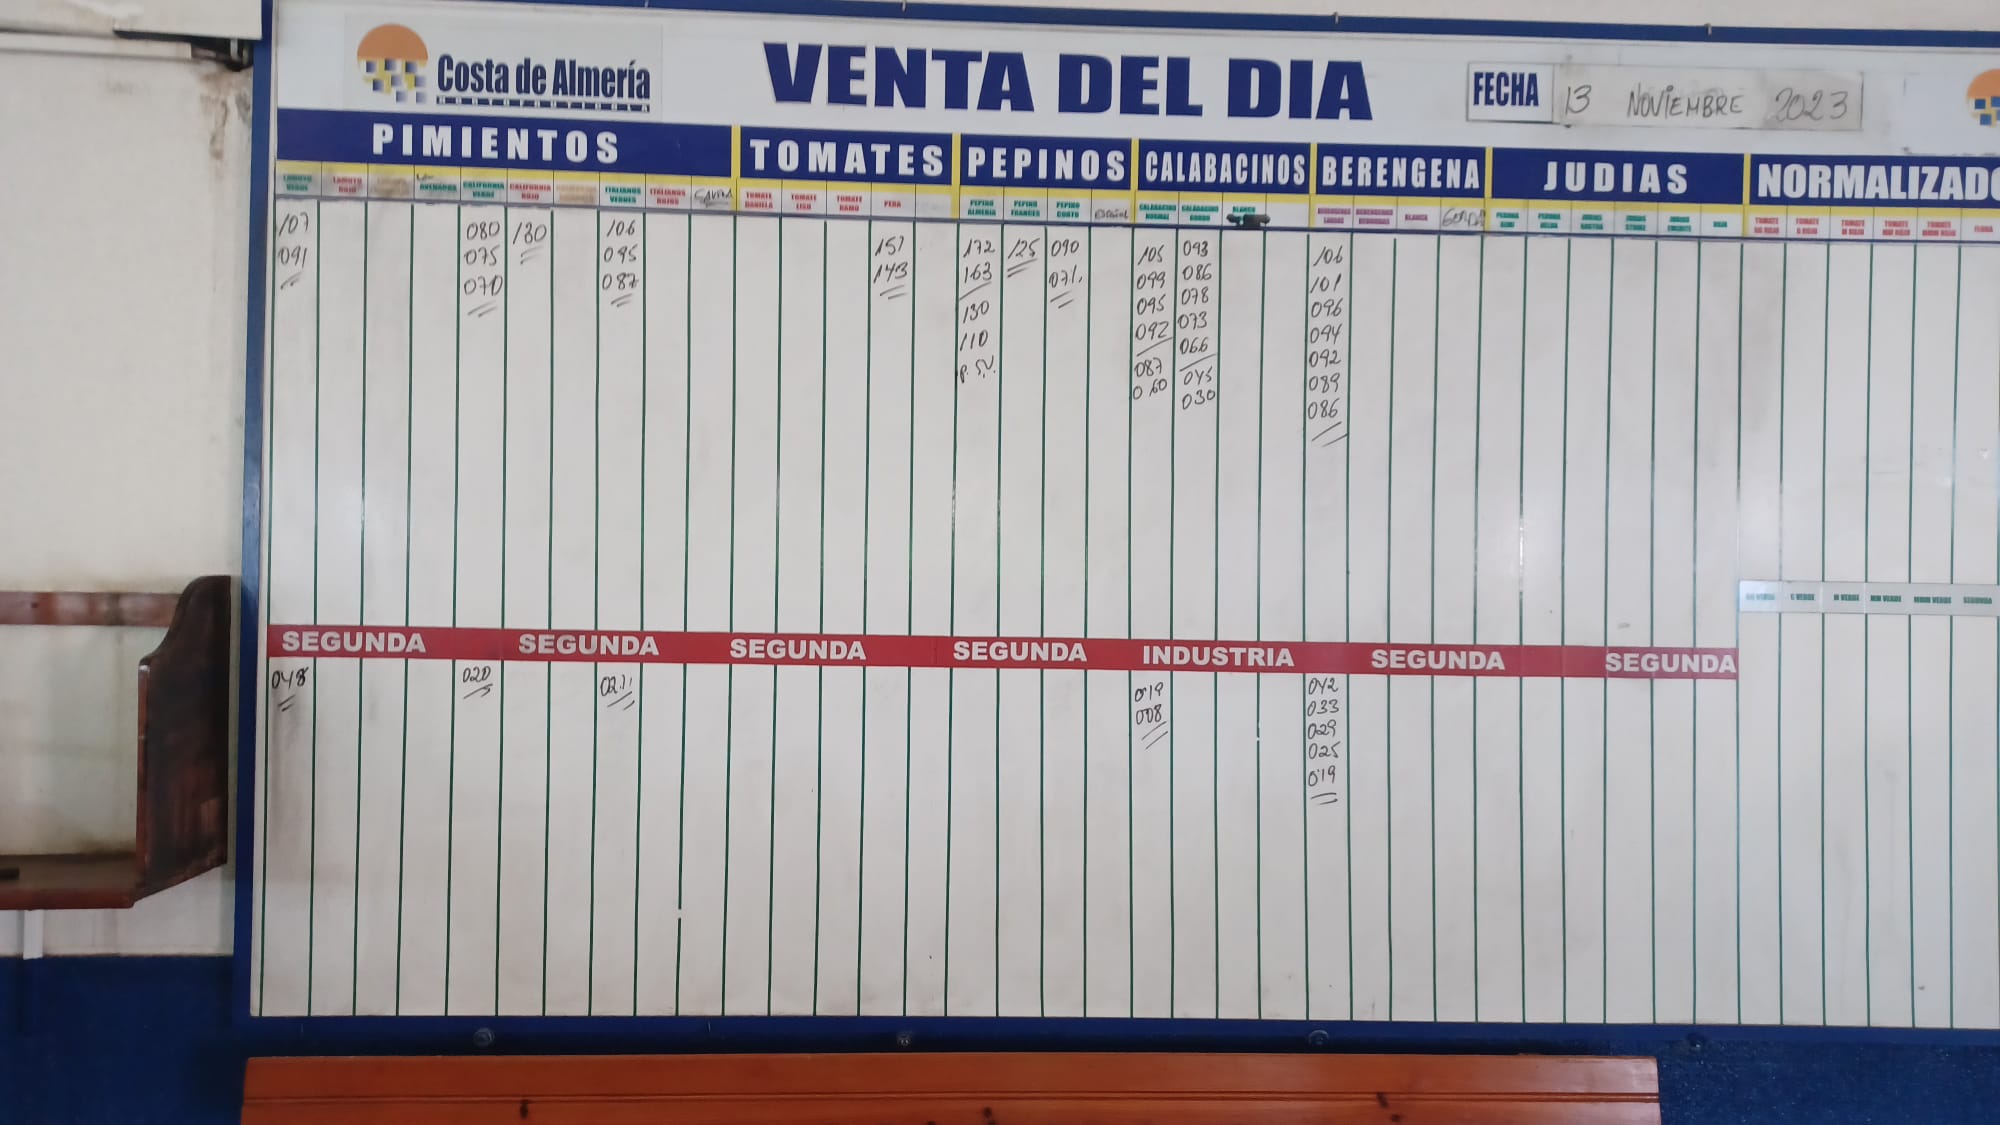 Costa de Almería
HORTOFRUTICOLA
VENTA DEL DIA
FECHA
13 NOVIEMBRE 2023
PIMIENTOS
TOMATES
PEPINOS
CALABACINOS
BERENGENA
JUDIAS
NORMALIZADO
LAMUYO VERDE
LAMUYO ROJO
CALIFORNIA VERDE
CALIFORNIA ROJO
ITALIANOS VERDES
ITALIANOS ROJOS
TOMATE DANIELA
TOMATE LISO
TOMATE RAMO
PERA
PEPINO ALMERIA
PEPINO FRANCES
PEPINO CORTO
CALABACINO NORMAL
CALABACINO GORDO
BLANCO
BLANCA
GORDA
107
091
080
075
070
130
106
095
087
151
143
172
163
130
110
P. S.V.
125
090
071.
105
099
095
092
087
060
093
086
078
073
066
045
030
106
101
096
094
092
089
086
G VERDE
M VERDE
MM VERDE
MMM VERDE
SEGUNDA
SEGUNDA
SEGUNDA
SEGUNDA
SEGUNDA
INDUSTRIA
SEGUNDA
SEGUNDA
048
020
027
019
008
042
033
029
025
019